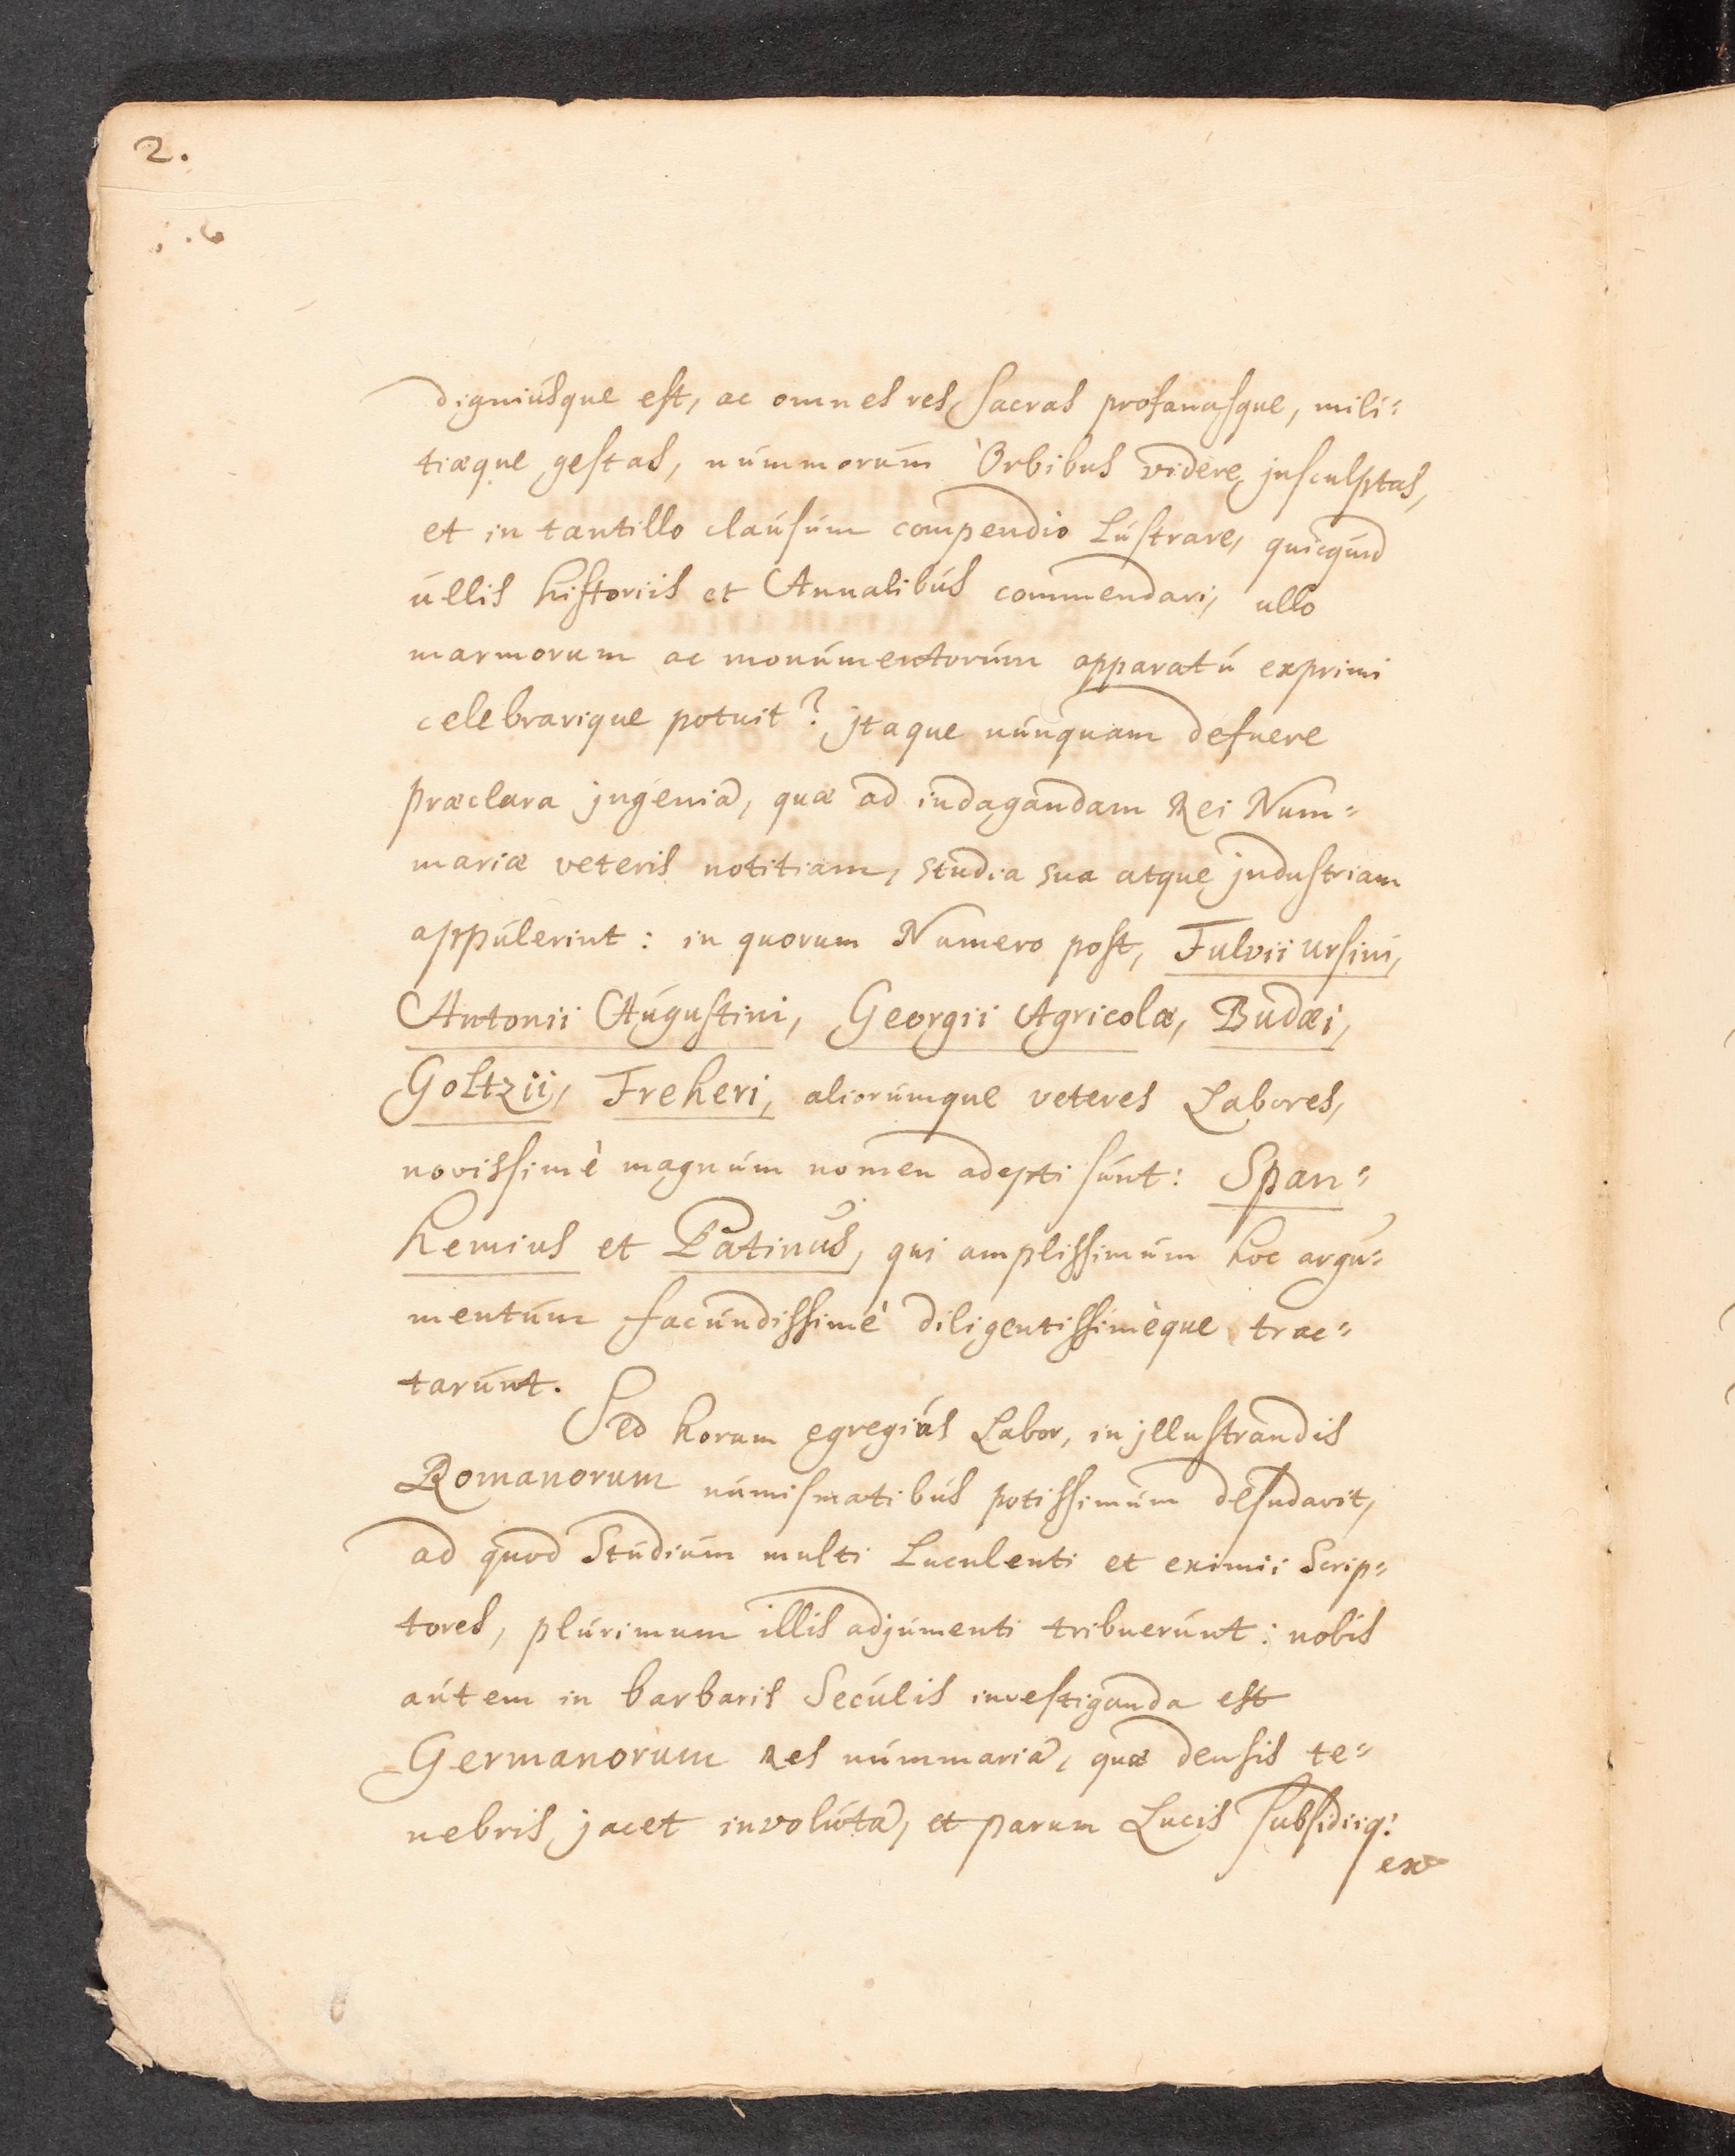 2.
digniúsque est, ac omnes res sacras profanasque, mili=
tiæque gestas, númmorúm Orbibus videre jnsculptas,
et in tantillo claúsúm compendio Lústrare, quicqúid
úllis historiis et Annalibús commendari, ullo
marmorum ac monúmentorúm apparatú exprimi
celebrarique potuit? jtaque núnquam defuere
præclara jngenia, quæ ad indagandam Rei Num=
mariæ veteris notitiam, studia sua atque jndustriam
appúlerint: in quorum Numero post, Fulvii Ursini,
Antonii Aúgustini, Georgii Agricolæ, Budæi,
Goltzii, Freheri, aliorúmque veteres Labores,
novissimè magnúm nomen adepti súnt: Span=
hemius et Patinus, qui amplissimúm hoc argú=
mentúm facúndissimè diligentissimèque trac=
tarúnt.
Sed horum egregiús Labor, in jllustrandis
Romanorum númismatibús potissimúm desudavit,
ad quod Stúdiúm multi Luculenti et eximii Scrip=
tores, plúrimum illis adjúmenti tribuerúnt: nobis
aútem in barbaris Secúlis investiganda est
Germanorum Res númmaria, quæ densis te=
nebris jacet involúta, et parum Lucis subsidiiq:
ex